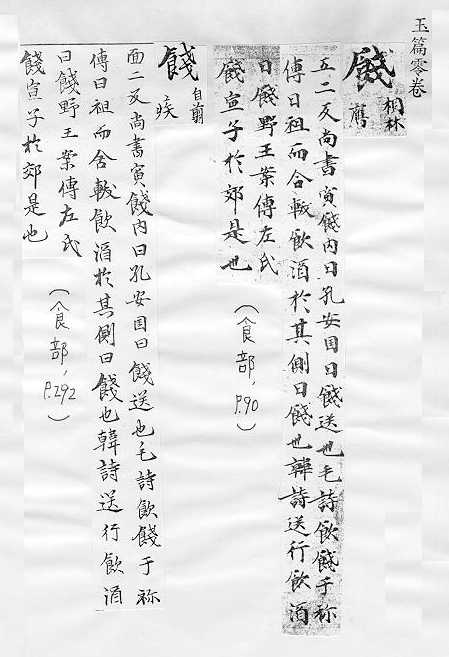 玉篇零卷
餞
桐林
膺
五二反尚書寅餞内日孔安国曰餞送也毛詩飲餞于祢
傳曰祖而舍軷飲酒於其側曰餞也韓詩送行飲酒
曰餞野王案傳左氏
餞宣子於郊是也
（食部，P.90）
餞
自翦
疾
面二反尚書寅餞内日孔安国曰餞送也毛詩飲餞于祢
傳曰祖而舍軷飲酒於其側曰餞也韓詩送行飲酒
曰餞野王案傳左氏
餞宣子於郊是也
（食部，P.292）